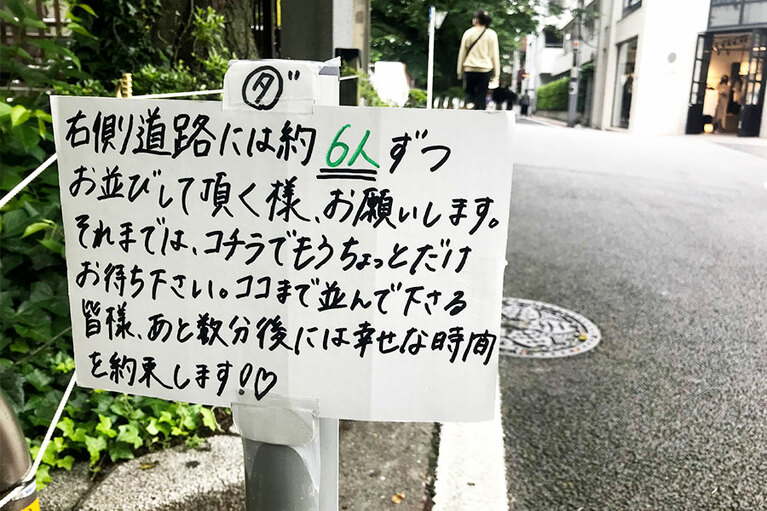 ダ
右側り道路には約 6人ずつ
お並びして頂く様、お願いします。
それまでは、コチラでもうちょっとだけ
お待ち下さい。ココまで並んで下さる
皆様、あと数分後には幸せな時間
を約束します!♡